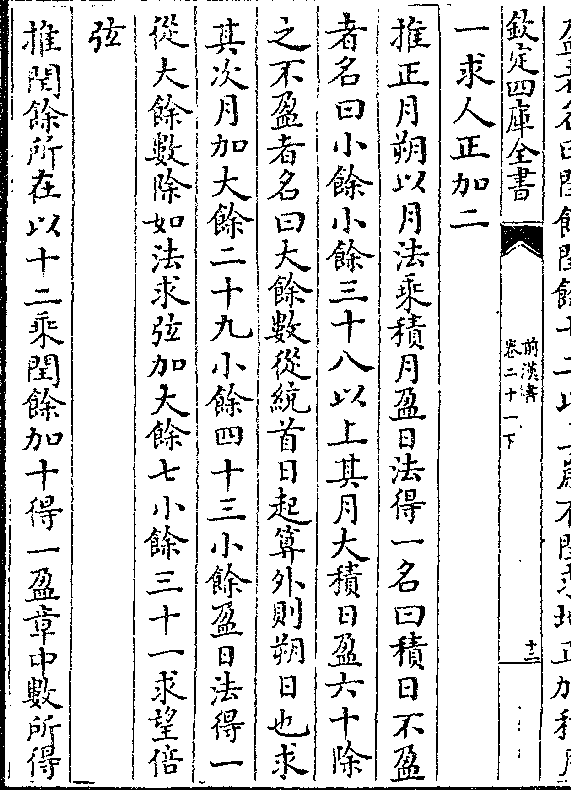 盈者名曰閏餘閏餘十二以上歲不閏求地正加積月
欽定四庫全書
前漢書
卷二十一下
十二
一求人正加二
推正月朔以月法乘積月盈日法得一名曰積日不盈
者名曰小餘小餘三十八以上其月大積日盈六十除
之不盈者名曰大餘數從統首日起算外則朔日也求
其次月加大餘二十九小餘四十三小餘盈日法得一
從大餘數除如法求弦加大餘七小餘三十一求望倍
弦
推閏餘所在以十二乘閏餘加十得一盈章中數所得